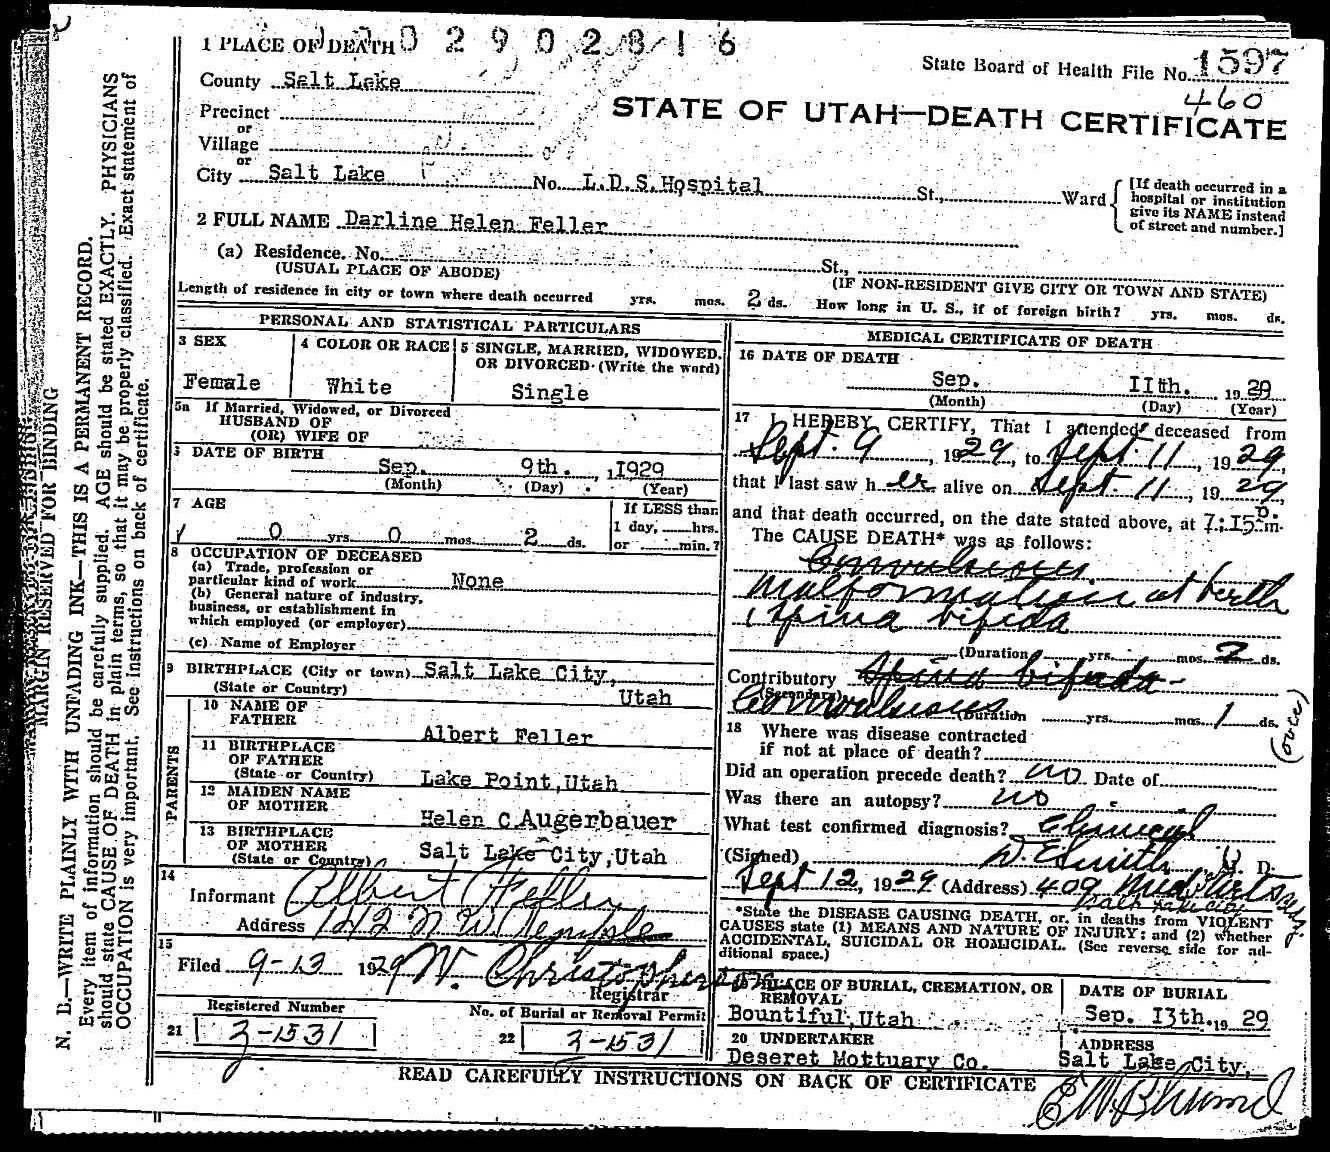 1 PLACE OF DEATH
0 2 9 0 2 8 1 6
State Board of Health File No. 1597
460
County Salt Lake
STATE OF UTAH—DEATH CERTIFICATE
Precinct
or
Village
or
City Salt Lake No. L.D.S.Hospital St., Ward
[If death occurred in a
hospital or institution
give its NAME instead
of street and number.]
2 FULL NAME Darline Helen Feller
(a) Residence. No. St.,
(USUAL PLACE OF ABODE) (IF NON-RESIDENT GIVE CITY OR TOWN AND STATE)
Length of residence in city or town where death occurred yrs. mos. 2 ds. How long in U. S., if of foreign birth? yrs. mos. ds.
PERSONAL AND STATISTICAL PARTICULARS
3 SEX
Female
4 COLOR OR RACE
White
5 SINGLE, MARRIED, WIDOWED,
OR DIVORCED (Write the word)
Single
5a If Married, Widowed, or Divorced
HUSBAND OF
(OR) WIFE OF
DATE OF BIRTH
Sep. 9th. , 1929
(Month) (Day) (Year)
7 AGE
0 yrs. 0 mos. 2 ds.
If LESS than
1 day, hrs.
or min.?
8 OCCUPATION OF DECEASED
(a) Trade, profession or
particular kind of work None
(b) General nature of industry,
business, or establishment in
which employed (or employer)
(c) Name of Employer
9 BIRTHPLACE (City or town) Salt Lake City,
(State or Country) Utah
PARENTS
10 NAME OF
FATHER Albert Feller
11 BIRTHPLACE
OF FATHER
(State or Country) Lake Point,Utah
12 MAIDEN NAME
OF MOTHER Helen C Augerbauer
13 BIRTHPLACE
OF MOTHER
(State or Country) Salt Lake City,Utah
14
Informant Albert Feller
Address 142 N. W. Temple
15
Filed 9-13 1929 W. Christopherson
Registrar
Registered Number
21 3-1531
No. of Burial or Removal Permit
22 3-1531
MEDICAL CERTIFICATE OF DEATH
16 DATE OF DEATH
Sep. IIth. 1929
(Month) (Day) (Year)
17 I HEREBY CERTIFY, That I attended deceased from
Sept. 9, 1929, to Sept. 11, 1929,
that I last saw her alive on Sept. 11, 1929,
and that death occurred, on the date stated above, at 7:15 P. m.
The CAUSE DEATH* was as follows:
Convulsions.
Malformation at birth
Spina bifida
(Duration yrs. mos. 2 ds.
Contributory Spina bifida
(Secondary)
Convulsions (Duration yrs. mos. 1 ds.
(over)
18 Where was disease contracted
if not at place of death?
Did an operation precede death? no Date of
Was there an autopsy? no
What test confirmed diagnosis? Clinical
(Signed) D. E. Smith M. D.
Sept 12, 1929 (Address) 409 Med. Arts Bldg.
Salt Lake City
*State the DISEASE CAUSING DEATH, or, in deaths from VIOLENT
CAUSES state (1) MEANS AND NATURE OF INJURY; and (2) whether
ACCIDENTAL, SUICIDAL OR HOMICIDAL. (See reverse side for ad-
ditional space.)
PLACE OF BURIAL, CREMATION, OR
REMOVAL
Bountiful,Utah
DATE OF BURIAL
Sep. I3th. 19 29
20 UNDERTAKER
Deseret Mottuary Co.
ADDRESS
Salt Lake City,
READ CAREFULLY INSTRUCTIONS ON BACK OF CERTIFICATE
MARGIN RESERVED FOR BINDING
N. B.—WRITE PLAINLY WITH UNFADING INK—THIS IS A PERMANENT RECORD.
Every item of information should be carefully supplied. AGE should be stated EXACTLY. PHYSICIANS
should state CAUSE OF DEATH in plain terms, so that it may be properly classified. Exact statement of
OCCUPATION is very important. See instructions on back of certificate.